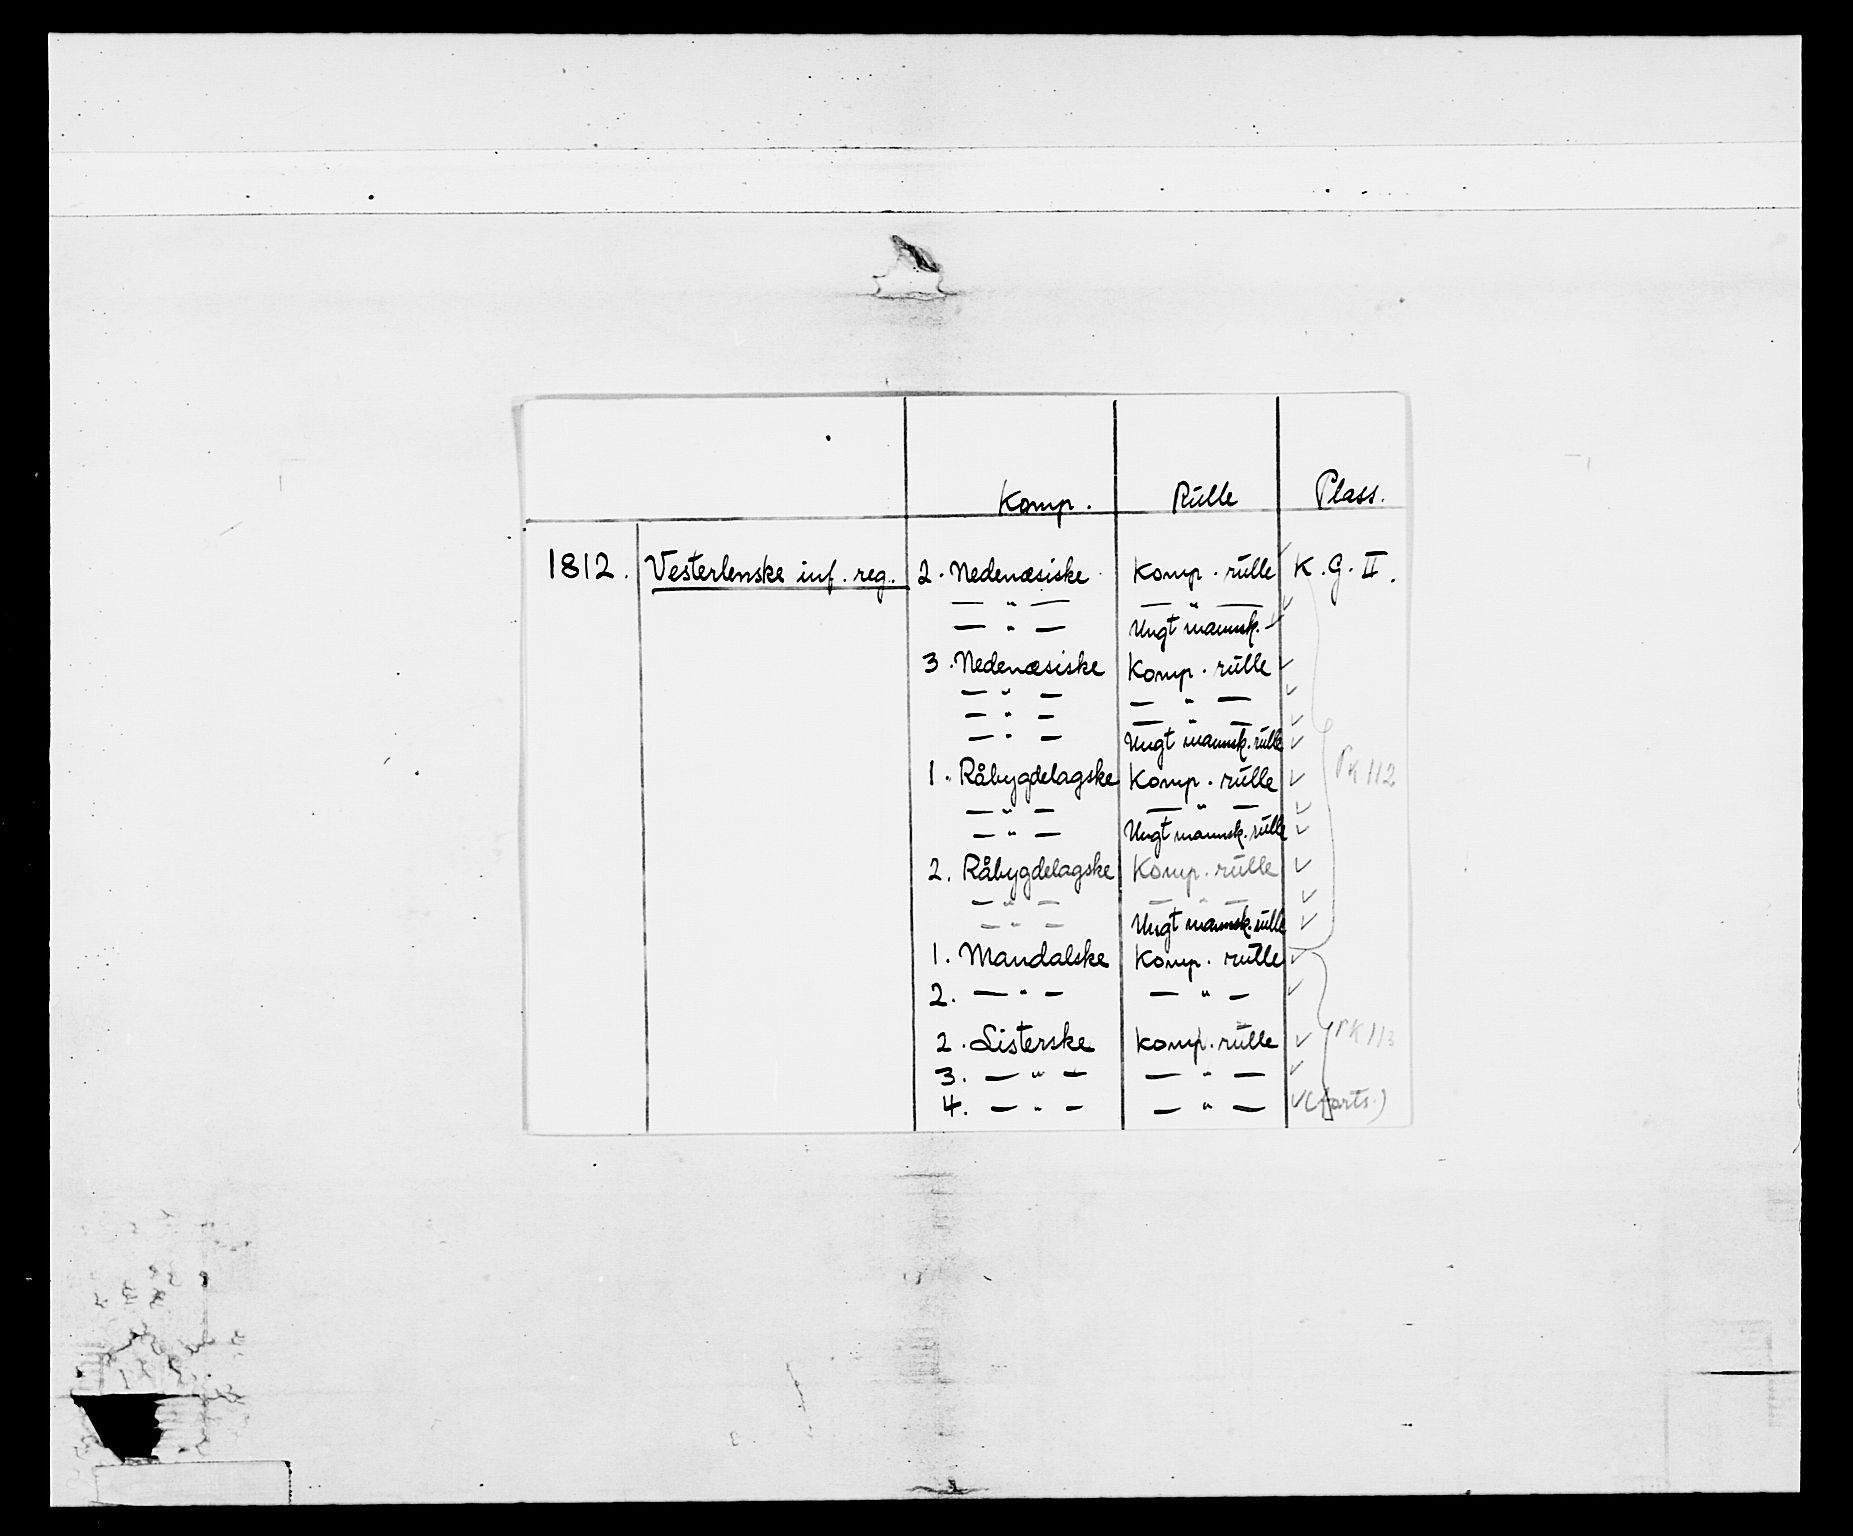 Komp. Rülle Plass.
1812. Vesterlenske inf. reg. 2. Nedenæsiske Komp. rülle K. G. II.
— " — — " — ✓
— " — Ungt mannsk. ✓
3. Nedenæsiske Komp. rülle ✓
— " — — " — ✓
— " — — " — ✓
— " — Ungt mannsk. rülle ✓
1. Råbygdelagske Komp. rülle ✓ Pk 112
— " — — " — ✓
— " — Ungt mannsk. rülle ✓
2. Råbygdelagske Komp. rülle ✓
— " — — " — ✓
— " — Ungt mannsk. rülle ✓
1. Mandalske Komp. rulle ✓
2. — " — — " — ✓
2. Listerske Komp. rülle ✓ PK 113
3. — " — — " — ✓
4. — " — — " — ✓ (forts.)